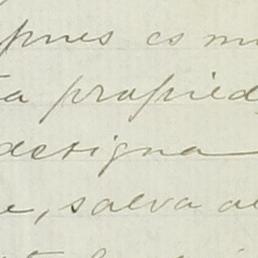 pues es m
ta propied
designa
e, salva a